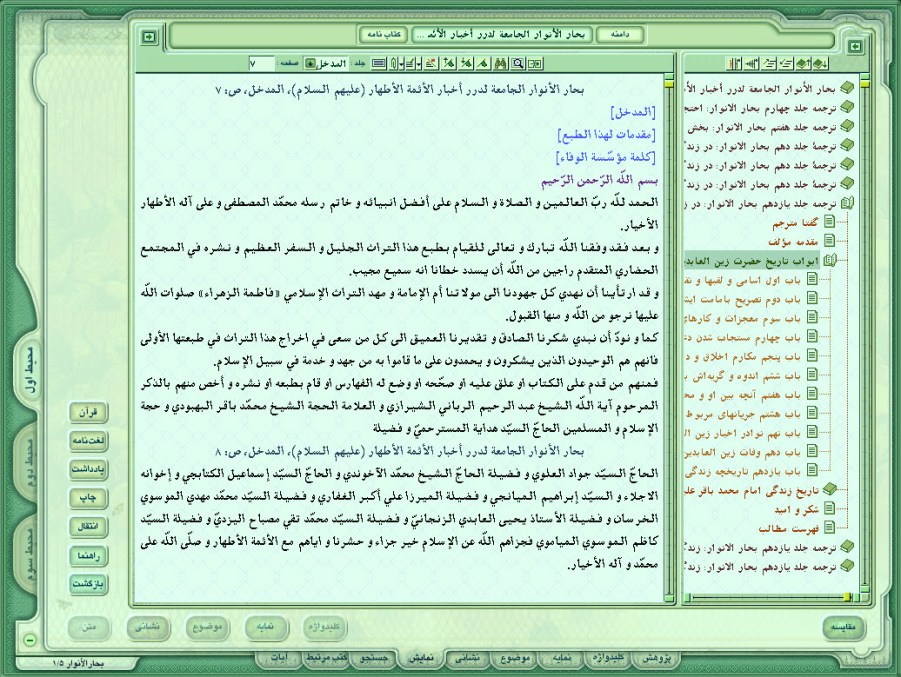 دامنه
بحار الأنوار الجامعة لدرر أخبار الأئمّ ...
کتاب نامه
جلد : المدخل
صفحه : ۷
بحار الأنوار الجامعة لدرر أخبار الأئمة الأطهار (عليهم السلام)، المدخل، ص: ۷
[المدخل]
[مقدمات لهذا الطبع]
[كلمة مؤسّسة الوفاء]
بسم اللّه الرّحمن الرّحيم
الحمد للّه ربّ العالمين و الصلاة و السلام على أفضل انبيائه و خاتم رسله محمّد المصطفى و على آله الأطهار
الأخيار.
و بعد فقد وفقنا اللّه تبارك و تعالى للقيام بطبع هذا التراث الجليل و السفر العظيم و نشره في المجتمع
الحضاري المتقدم راجين من اللّه أن يسدد خطانا انه سميع مجيب.
و قد ارتأينا أن نهدي كل جهودنا الى مولاتنا أم الإمامة و مهد التراث الإسلامي «فاطمة الزهراء» صلوات اللّه
عليها نرجو من اللّه و منها القبول.
كما و نودّ أن نبدي شكرنا الصادق و تقديرنا العميق الى كل من سعى في اخراج هذا التراث في طبعتها الأولى
فانهم هم الوحيدون الذين يشكرون و يحمدون على ما قاموا به من جهد و خدمة في سبيل الإسلام.
فمنهم من قدم على الكتاب او علق عليه او صحّحه او وضع له الفهارس او قام بطبعه او نشره و أخص منهم بالذكر
المرحوم آية اللّه الشيخ عبد الرحيم الرباني الشيرازي و العلامة الحجة الشيخ محمّد باقر البهبودي و حجة
الإسلام و المسلمين الحاجّ السيّد هداية المسترحميّ و فضيلة
بحار الأنوار الجامعة لدرر أخبار الأئمة الأطهار (عليهم السلام)، المدخل، ص: ۸
الحاجّ السيّد جواد العلوي و فضيلة الحاجّ الشيخ محمّد الآخوندي و الحاجّ السيّد إسماعيل الكتابجي و إخوانه
الاجلاء و السيّد إبراهيم الميانجي و فضيلة الميرزا علي أكبر الغفاري و فضيلة السيّد محمّد مهدي الموسوي
الخرسان و فضيلة الأستاذ يحيى العابدي الزنجانيّ و فضيلة السيّد محمّد تقي مصباح اليزديّ و فضيلة السيّد
كاظم الموسوي المياموي فجزاهم اللّه عن الإسلام خير جزاء و حشرنا و اياهم مع الأئمة الأطهار و صلّى اللّه على
محمّد و آله الأخيار.
بحار الأنوار الجامعة لدرر أخبار الأ
ترجمه جلد چهارم بحار الانوار: احتج
ترجمه جلد هفتم بحار الانوار: بخش
ترجمۀ جلد دهم بحار الانوار: در زند
ترجمۀ جلد دهم بحار الانوار: در زند
ترجمۀ جلد دهم بحار الانوار: در زند
ترجمه جلد یازدهم بحار الانوار: در ز
گفتا مترجم
مقدمه مؤلف
ابواب تاریخ حضرت زین العابد
باب اول اسامی و لقبها و نق
باب دوم تصریح بامامت ایش
باب سوم معجزات و کارهای
باب چهارم مستجاب شدن دع
باب پنجم مکارم اخلاق و د
باب ششم اندوه و گریه‌اش ب
باب هفتم آنچه بین او و مح
باب هشتم جریانهای مربوط
باب نهم نوادر اخبار زین ال
باب دهم وفات زین العابدین
باب یازدهم تاریخچه زندگی
تاریخ زندگی امام محمد باقر عل
شکر و امید
فهرست مطالب
ترجمه جلد یازدهم بحار الانوار: زندگ
ترجمه جلد یازدهم بحار الانوار: زندگ
محیط اول
محیط دوم
محیط سوم
قرآن
لغت‌نامه
یادداشت
چاپ
انتقال
راهنما
بازگشت
مقایسه
کلیدواژه
نمایه
موضوع
نشانی
متن
پژوهش
کلیدواژه
نمایه
موضوع
نشانی
نمایش
جستجو
کتب مرتبط
آیات
بحارالأنوار ۱/۵